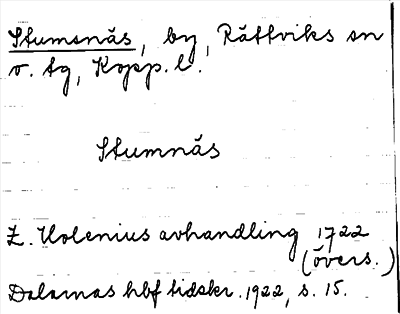 Stumsnäs, by, Rättviks sn
o. tg, Kopp. l.
Stumnäs
Z. Holenius avhandling 1722
(övers.)
Dalarnas hbf tidskr. 1922, s. 15.